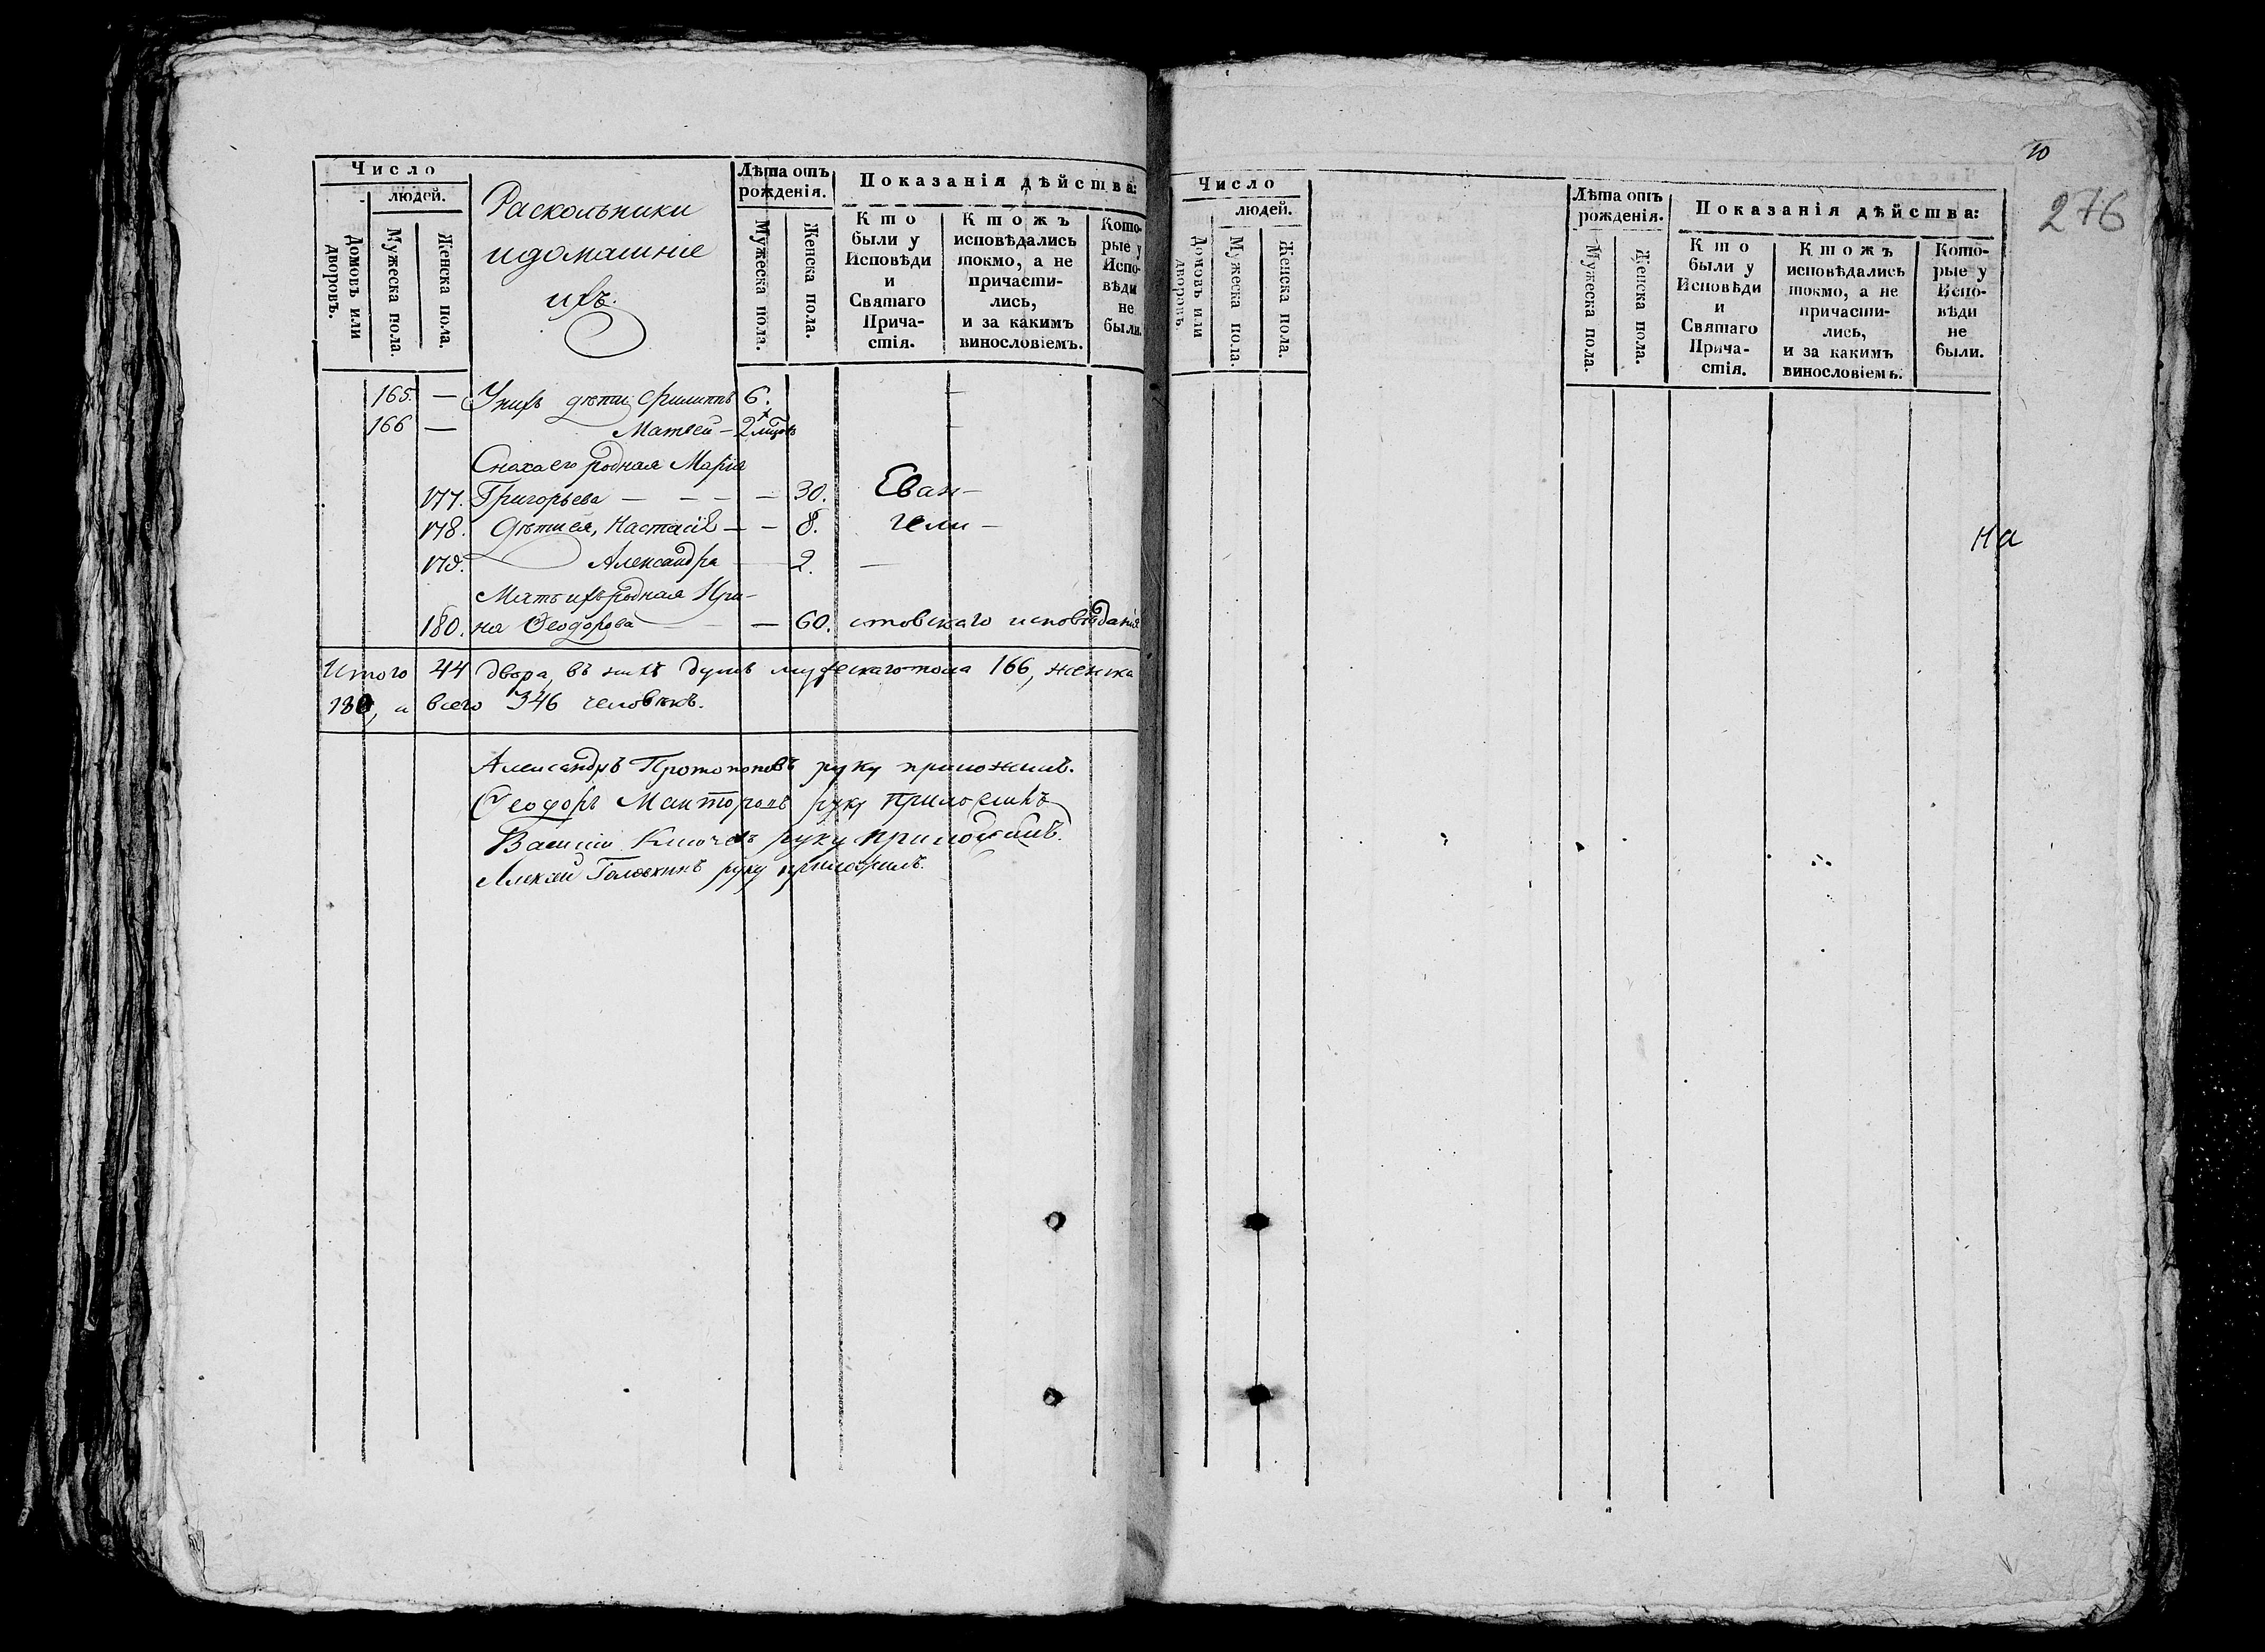 Число
людей.
Домовъ или дворовъ.
Мужеска пола.
Женска пола.
Раскольники
и домашніе
ихъ.
Лѣта отъ рожденія.
Мужеска пола.
Женска пола.
Показанія дѣйства:
Кто были у Исповѣди и Святаго Причастія.
Ктожъ исповѣдались токмо, а не причастились, и за какимъ винословіемъ.
Которые у Исповѣди не были.
165. — У нихъ дѣти, Филиппъ 6. —
166 — Матвей — 2 —
Сноха его родная Марія
177. Григорьева — — — — 30. Еван-
178. Дѣти ея, Настасія — — 8. гели-
179. Александра 2. —
Мать ихъ родная Ири-
180. на Ѳеодорова — 60. стовскаго исповѣданія
Итого 44 двора, въ нихъ душъ мужескаго пола 166, женска
180, а всего 346 человѣкъ.
Александръ Протопоповъ руку приложилъ.
Ѳеодоръ руку приложилъ
Василій Ключевъ руку приложилъ.
Алексѣй Головкинъ руку приложилъ.
10
276
Число
людей.
Домовъ или дворовъ.
Мужеска пола
Женска пола.
Лѣта отъ рожденія.
Мужеска пола.
Женска пола.
Показанія дѣйства:
Кто были у Исповѣди и Святаго Причастія.
Ктожъ исповѣдались токмо, а не причастились, и за какимъ винословіемъ.
Которые у Исповѣди не были.
на